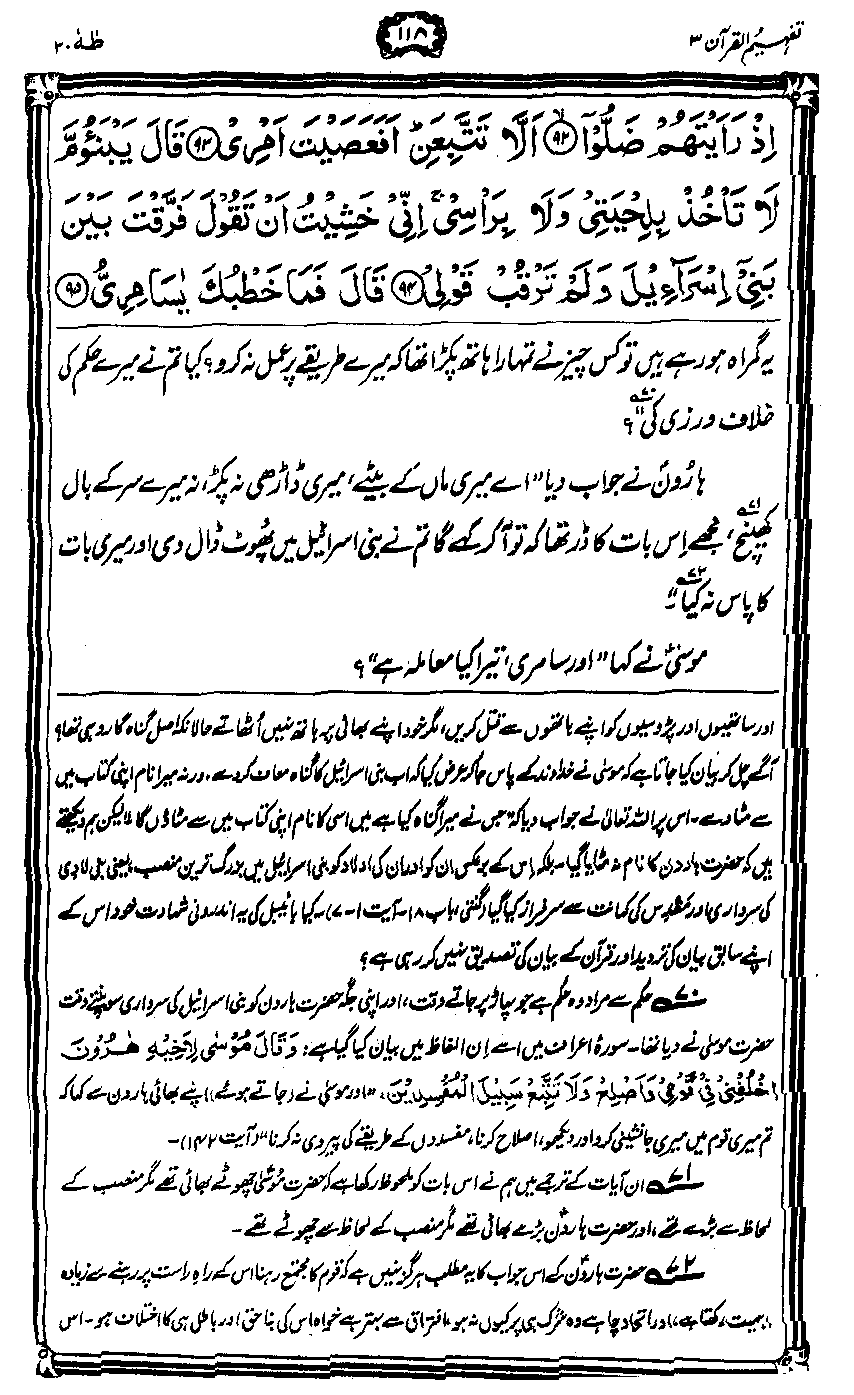 تفہیم القرآن ۳
۱۱۸
طٰہٰ ۲۰
اِذْ رَاَيْتَهُمْ ضَلُّوْٓا ۙ﴿۹۲﴾ اَلَّا تَتَّبِعَنِ ؕ اَفَعَصَيْتَ اَمْرِيْ ﴿۹۳﴾ قَالَ يَبْنَؤُمَّ
لَا تَاْخُذْ بِلِحْيَتِيْ وَلَا بِرَاْسِيْ ۚ اِنِّيْ خَشِيْتُ اَنْ تَقُوْلَ فَرَّقْتَ بَيْنَ
بَنِيْٓ اِسْرَآءِيْلَ وَلَمْ تَرْقُبْ قَوْلِيْ ﴿۹۴﴾ قَالَ فَمَا خَطْبُكَ يٰسَامِرِيُّ ﴿۹۵﴾
یہ گمراہ ہو رہے ہیں تو کس چیز نے تمہارا ہاتھ پکڑا تھا کہ میرے طریقے پر عمل نہ کرو؟ کیا تم نے میرے حکم کی
خلاف ورزی کی؟“ ۷۰
ہارُونؑ نے جواب دیا ”اے میری ماں کے بیٹے، میری ڈاڑھی نہ پکڑ، نہ میرے سر کے بال
کھینچ، ۷۱ مجھے اِس بات کا ڈر تھا کہ تو آ کر کہے گا تم نے بنی اسرائیل میں پھُوٹ ڈال دی اور میری بات
کا پاس نہ کیا۔“ ۷۲
موسیٰؑ نے کہا ”اور سامری، تیرا کیا معاملہ ہے“؟
اور ساتھیوں اور پڑوسیوں کو اپنے ہاتھوں سے قتل کریں، مگر خود اپنے بھائی پر ہاتھ نہیں اُٹھاتے حالانکہ اصل گناہ گار وہی تھا؟
آگے چل کر بیان کیا جاتا ہے کہ موسیٰ نے خداوند کے پاس جا کر عرض کیا کہ اب بنی اسرائیل کا گناہ معاف کر دے، ورنہ میرا نام اپنی کتاب میں
سے مٹا دے۔ اس پر اللہ تعالیٰ نے جواب دیا کہ ”جس نے میرا گناہ کیا ہے میں اسی کا نام اپنی کتاب میں سے مٹاؤں گا“۔ لیکن ہم دیکھتے
ہیں کہ حضرت ہارون کا نام نہ مٹایا گیا۔ بلکہ اِس کے برعکس ان کو اور ان کی اولاد کو بنی اسرائیل میں بزرگ ترین منصب، یعنی بنی لادی
کی سرداری اور مَقدِس کی کہانت سے سرفراز کیا گیا (گنتی، باب ۱۸۔ آیت ۱۔۷)۔ کیا بائیبل کی یہ اندرونی شہادت خود اس کے
اپنے سابق بیان کی تردید اور قرآن کے بیان کی تصدیق نہیں کر رہی ہے؟
۷۰ حکم سے مراد وہ حکم ہے جو پہاڑ پر جاتے وقت، اور اپنی جگہ حضرت ہارون کو بنی اسرائیل کی سرداری سونپتے وقت
حضرت موسیٰ نے دیا تھا۔ سورۂ اعراف میں اسے اِن الفاظ میں بیان کیا گیا ہے: وَقَالَ مُوْسٰى لِاَخِيْهِ هٰرُوْنَ
اخْلُفْنِيْ فِيْ قَوْمِيْ وَاَصْلِحْ وَلَا تَتَّبِعْ سَبِيْلَ الْمُفْسِدِيْنَ، ”اور موسیٰ نے (جاتے ہوئے) اپنے بھائی ہارون سے کہا کہ
تم میری قوم میں میری جانشینی کرو اور دیکھو، اصلاح کرنا، مفسدوں کے طریقے کی پیروی نہ کرنا“ (آیت ۱۴۲)۔
۷۱ ان آیات کے ترجمے میں ہم نے اس بات کو ملحوظ رکھا ہے کہ حضرت موسٰیؑ چھوٹے بھائی تھے مگر منصب کے
لحاظ سے بڑے تھے، اور حضرت ہارونؑ بڑے بھائی تھے مگر منصب کے لحاظ سے چھوٹے تھے۔
۷۲ حضرت ہارونؑ کے اس جواب کا یہ مطلب ہرگز نہیں ہے کہ قوم کا مجتمع رہنا اس کے راہِ راست پر رہنے سے زیادہ
اہمیت رکھتا ہے، اور اتحاد چاہے وہ شرک ہی پر کیوں نہ ہو، افتراق سے بہتر ہے خواہ اس کی بنا حق اور باطل ہی کا اختلاف ہو۔ اس